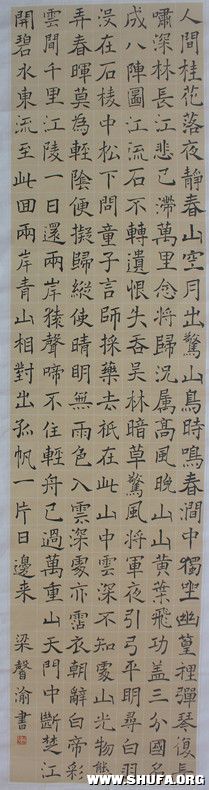 人間桂花落夜靜春山空月出驚山鳥時鳴春澗中獨坐幽篁裡彈琴復長
嘯深林長江悲已滯萬里念將歸況屬高風晚山山黃葉飛功蓋三分國名
成八陣圖江流石不轉遺恨失吞吴林暗草驚風將軍夜引弓平明尋白羽
沒在石棱中松下問童子言師採藥去祇在此山中雲深不知處山光物態
弄春暉莫為輕陰便擬歸縱使晴明無雨色入雲深處亦霑衣朝辭白帝彩
雲間千里江陵一日還兩岸猿聲啼不住輕舟已過萬重山天門中斷楚江
開碧水東流至此回兩岸青山相對出孤帆一片日邊来 梁馨渝書
WWW.SHUFA.ORG